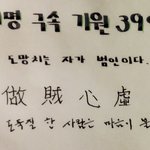 명 구속 기원 39
도망치는 자가 범인이다.
做賊心虛
도둑질 한 사람은 마음이